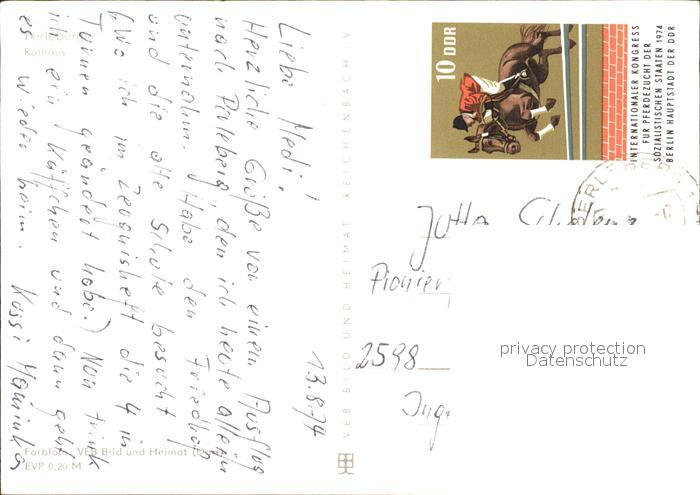 Perleberg
Rathaus
13.8.74
Liebe Medi!
Herzliche Grüße von einem Ausflug
nach Perleberg, den ich heute allein
unternahm. Habe den Friedhof
und die alte Schule besucht
(Wo ich im Zeugnisheft die 4 in
Turnen geändert habe.) Nun trink
ich ein Käffchen und dann geht
es wieder heim. Kussi
Farbfoto: VEB Bild und Heimat
EVP 0,20 M
VEB BILD UND HEIMAT REICHENBACH V
10 DDR
INTERNATIONALER KONGRESS
FÜR PFERDEZUCHT DER
SOZIALISTISCHEN STAATEN 1974
BERLIN HAUPTSTADT DER DDR
Jutta
Pionier
2598
privacy protection
Datenschutz